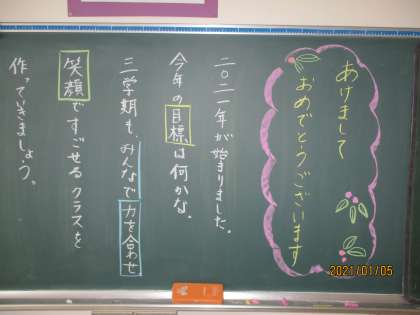 あけまして
おめでとうございます
二〇二一年が始まりました。
今年の目標は何かな。
三学期も、みんなで力を合わせ
笑顔ですごせるクラスを
作っていきましょう。
2021/01/05